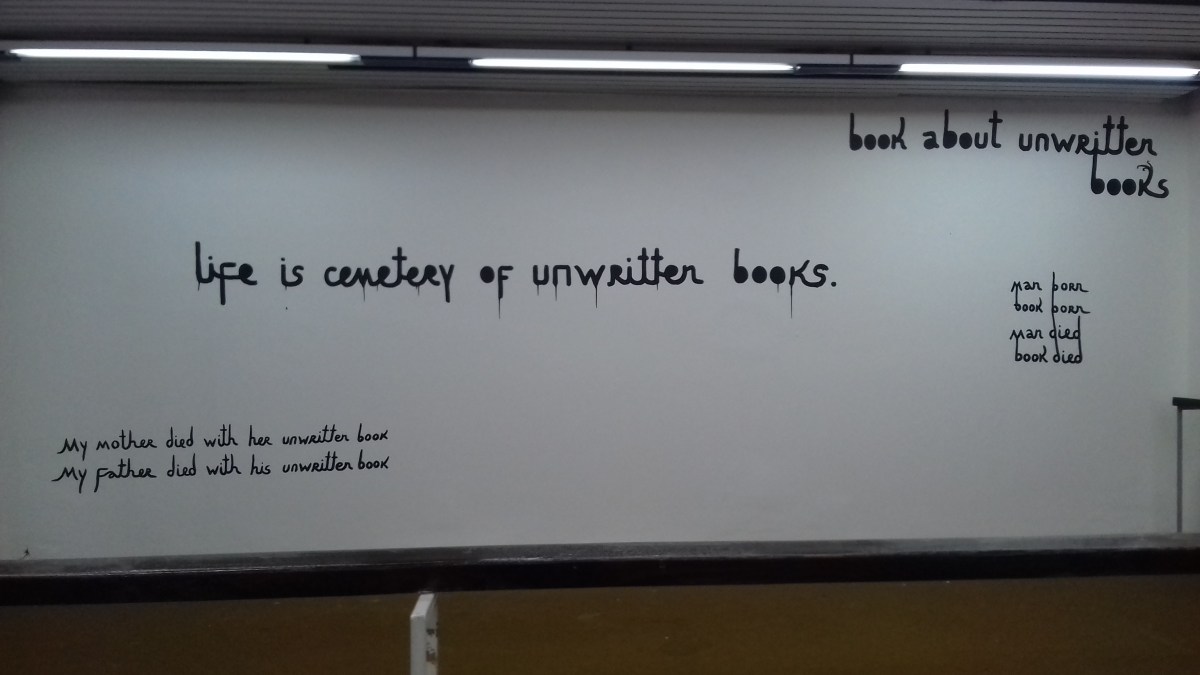 book about unwritten
books
life is cemetery of unwritten books.
man born
book born
man died
book died
My mother died with her unwritten book
My father died with his unwritten book